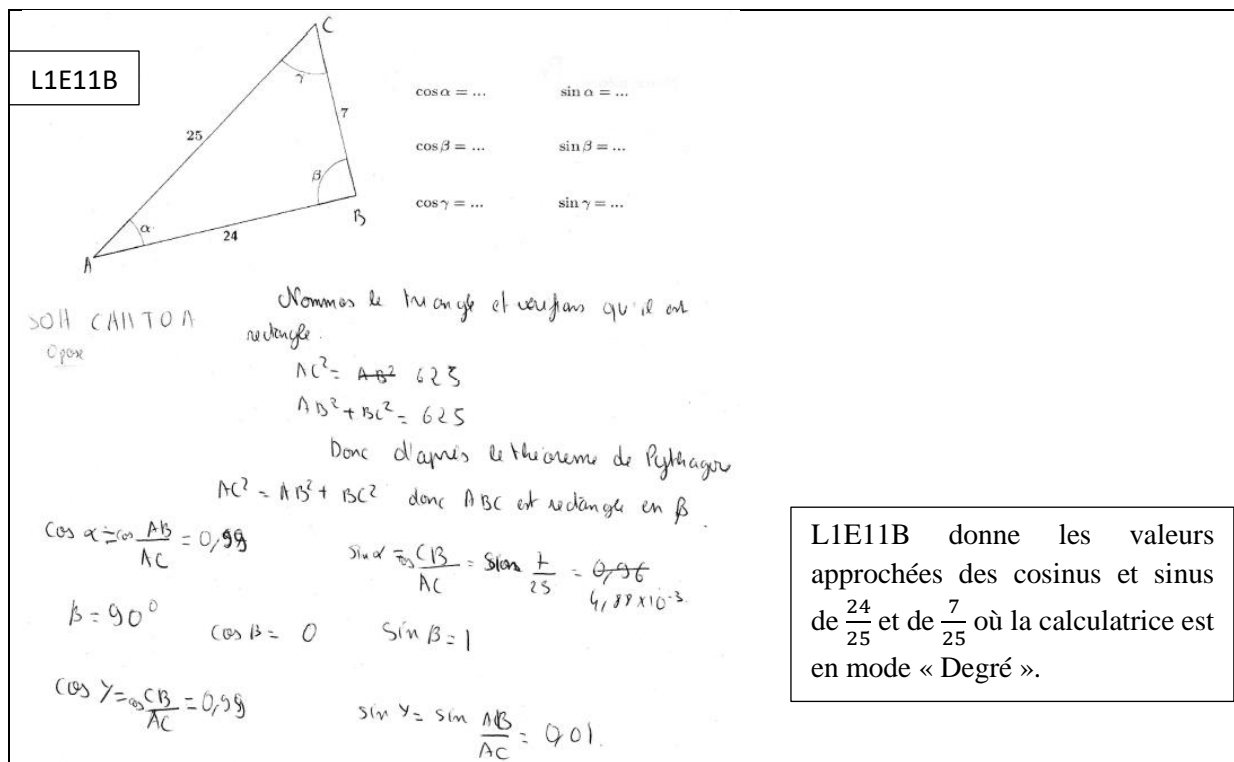 L1E11B
C
γ
25
7
β
B
α
24
A
cos α = ... sin α = ...
cos β = ... sin β = ...
cos γ = ... sin γ = ...
SOH CAH TOA
Nommos le triangle et verifions qu'il est
rectangle.
AC² = A̶B̶²̶ 625
AB² + BC² = 625
Donc d'après le théoreme de Pythagore
AC² = AB² + BC² donc ABC est rectangle en β.
cos α = cos AB/AC = 0,99
sin α = CB/AC = sin 7/25 = 0̶,̶9̶6̶
4,88 x 10⁻³
β = 90° cos β = 0 sin β = 1
cos γ = cos CB/AC = 0,99
sin γ = sin AB/AC = 0,01.
L1E11B donne les valeurs
approchées des cosinus et sinus
de 24/25 et de 7/25 où la calculatrice est
en mode « Degré ».